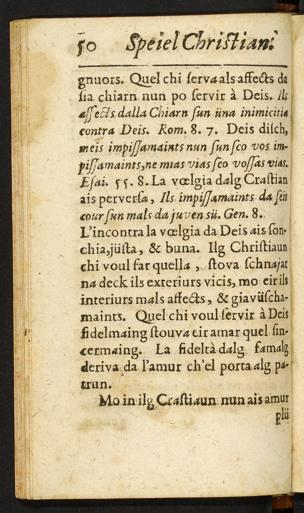 50 Speiel Christian.
gnuors. Quel chi ſerva als affects da
ſia chiarn nun po ſervir à Deis. Ils
affects dalla Chiarn ſun üna inimicitia
contra Deis. Rom. 8. 7. Deis diſch,
meis impiſſamaints nun ſun ſco vos im-
piſſamaints, ne mias vias ſco voſſas vias.
Eſai. 55. 8. La vœlgia dalg Craſtian
ais perverſa, Ils impiſſamaints da ſeis
cour ſun mals da juven sü. Gen. 8.
L'incontra la vœlgia da Deis ais ſon-
chia, jüſta, & buna. Ilg Chriſtiaun
chi voul far quella, ſtova ſchnajar
na deck ils exteriurs vicis, mo eir ils
interiurs mals affects, & giavüſcha-
maints. Quel chi voul ſervir à Deis
fidelmaing ſtouva eir amar quel ſin-
cermaing. La fideltà dalg famalg
deriva da l'amur ch'el porta alg pa-
trun.
Mo in ilg Craſtiaun nun ais amur
plü